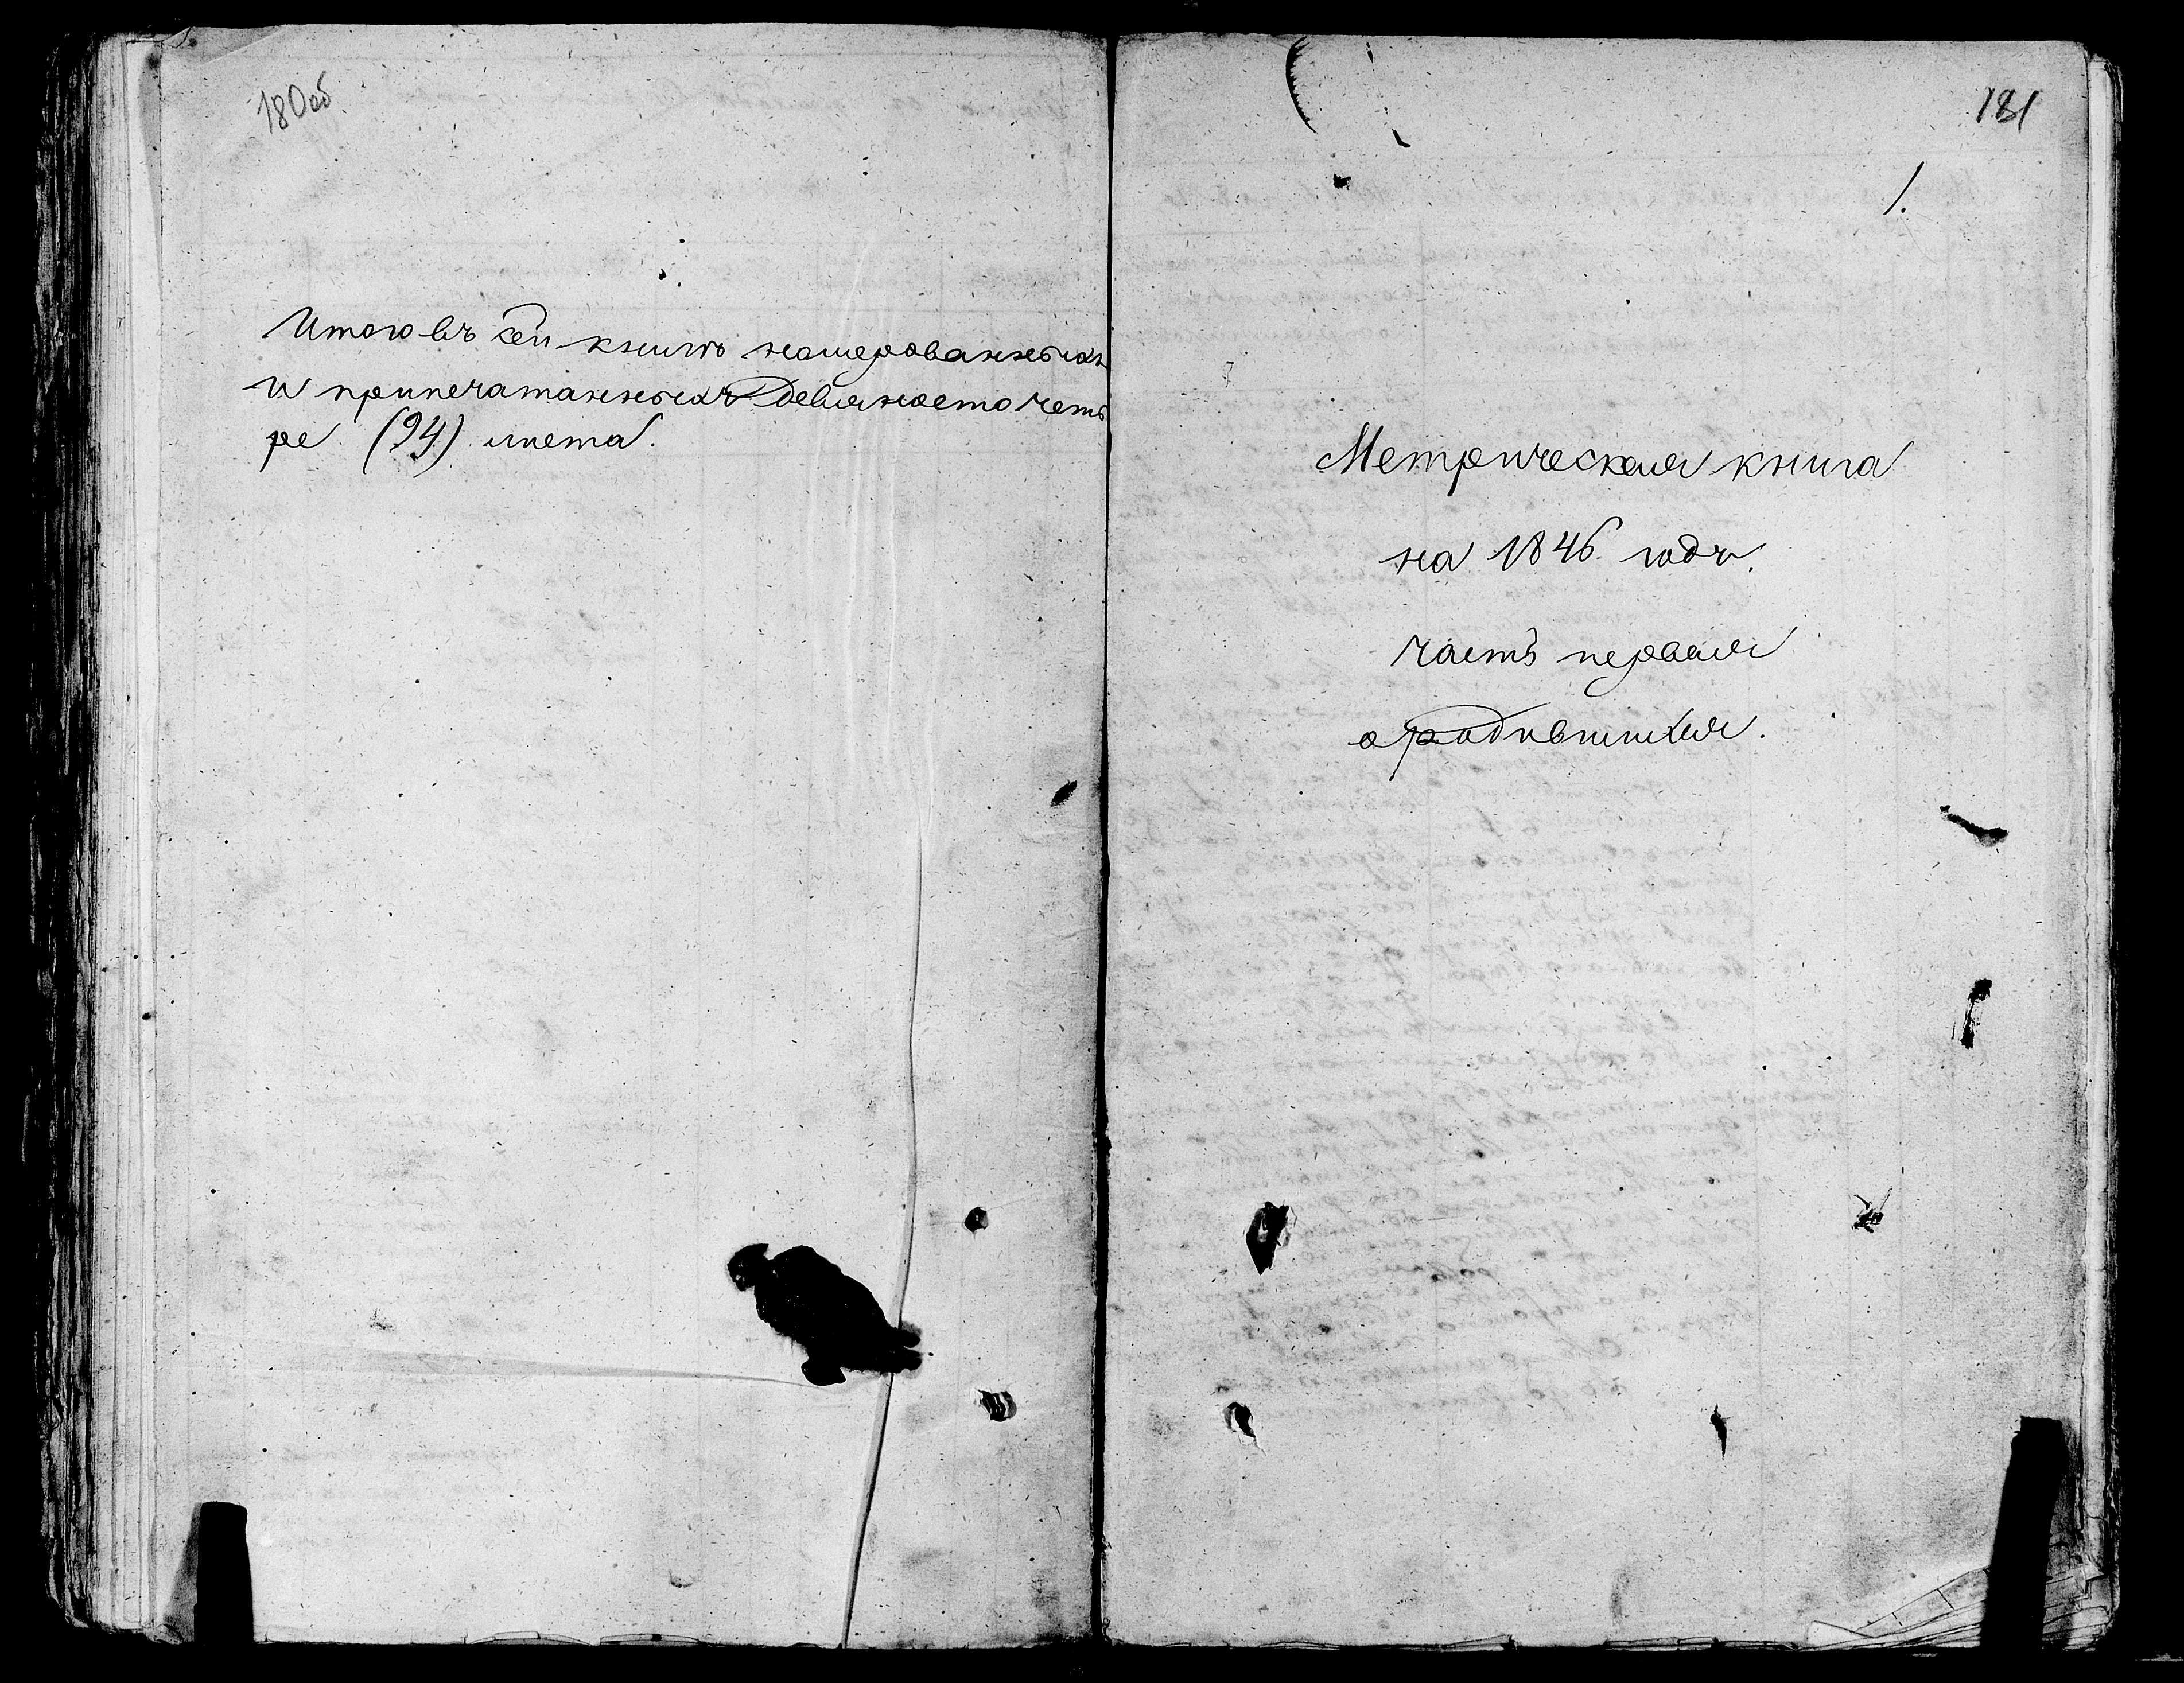 180об
Итого въ сей книге номерованныхъ
и припечатанныхъ девяносто четы
ре (94) листа.
181
1.
Метрическая книга
на 1846 годъ.
часть первая
о родившихся.